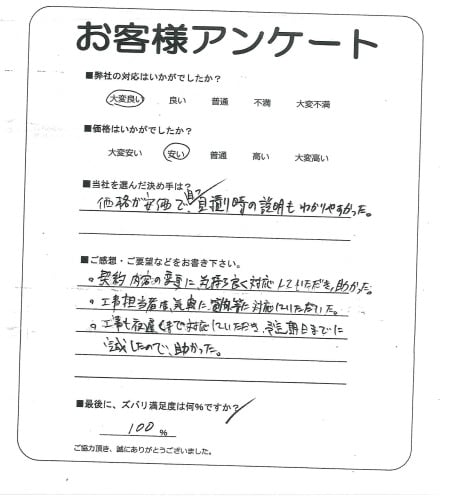 お客様アンケート
■弊社の対応はいかがでしたか?
大変良い 良い 普通 不満 大変不満
■価格はいかがでしたか?
大変安い 安い 普通 高い 大変高い
■当社を選んだ決め手は?
価格が安価で、見積り時の説明もわかりやすかった。
■ご感想・ご要望などをお書き下さい。
。契約内容の変更に気持ち良く対応していただき、助かった。
。工事担当者は、対応していただいた。
。工事も夜遅くまで対応していただき、予定期日までに
完成したので、助かった。
■最後に、ズバリ満足度は何%ですか?
100 %
ご協力頂き、誠にありがとうございました。